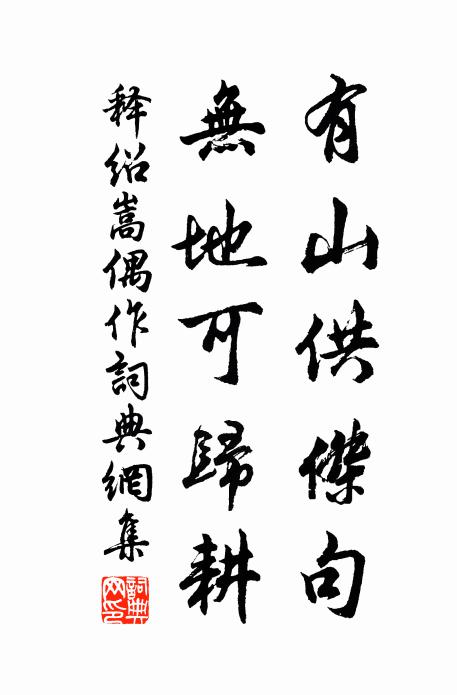 有山供傑句
無地可歸耕
释绍嵩偶作詞典網集
詞典網印